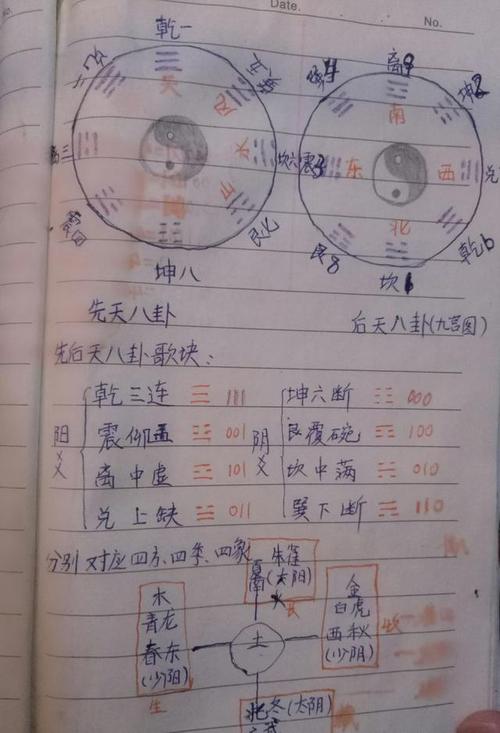 Date.
No.
乾一
兑二
巽五
天
风
三
水
坎六
山
艮七
坤八
先天八卦
离9
坤2
南
震3
东
西
兑
北
艮8
乾6
坎1
后天八卦(九宫图)
先后天八卦歌块:
阳爻
乾三连 ☰ 111
震仰盂 ☳ 001
离中虚 ☲ 101
兑上缺 ☱ 011
阴爻
坤六断 ☷ 000
艮覆碗 ☶ 100
坎中满 ☵ 010
巽下断 ☴ 110
分别对应四方、四季、四象
朱雀
夏南(太阳)
火
木
青龙
春东
(少阳)
生
土
金
白虎
西秋
(少阴)
收
北冬(太阴)